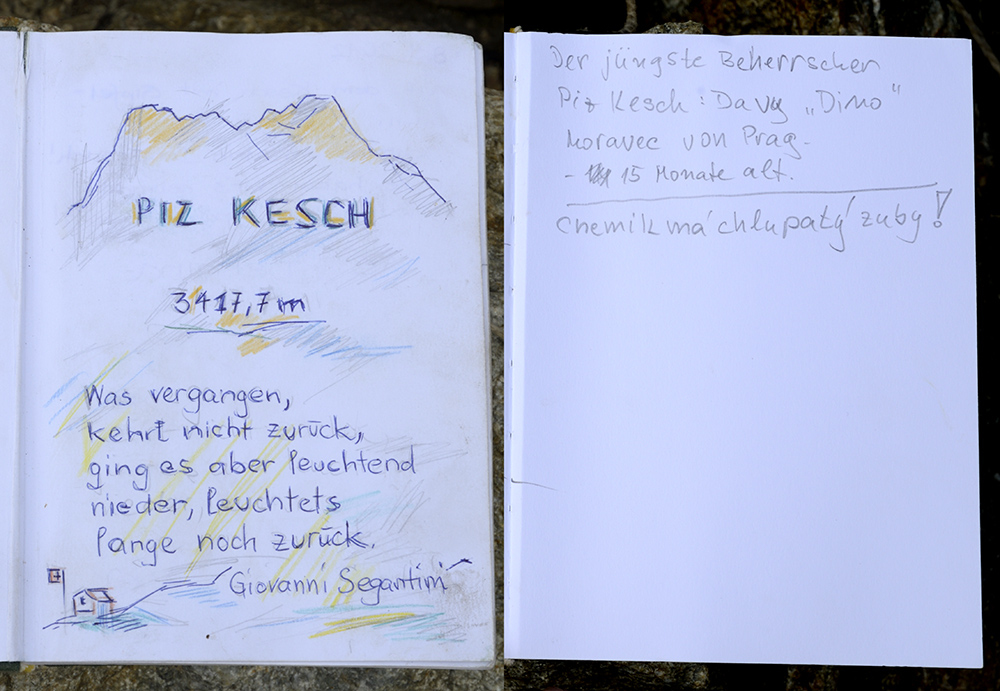 PIZ KESCH
3417,7 m
Was vergangen,
kehrt nicht zurück,
ging es aber leuchtend
nieder, leuchtets
lange noch zurück.
Giovanni Segantini
Der jüngste Beherrscher
Piz Kesch: Davy „Dimo"
Moravec von Prag.
- 15 Monate alt.
chemik má chlupatý zuby!